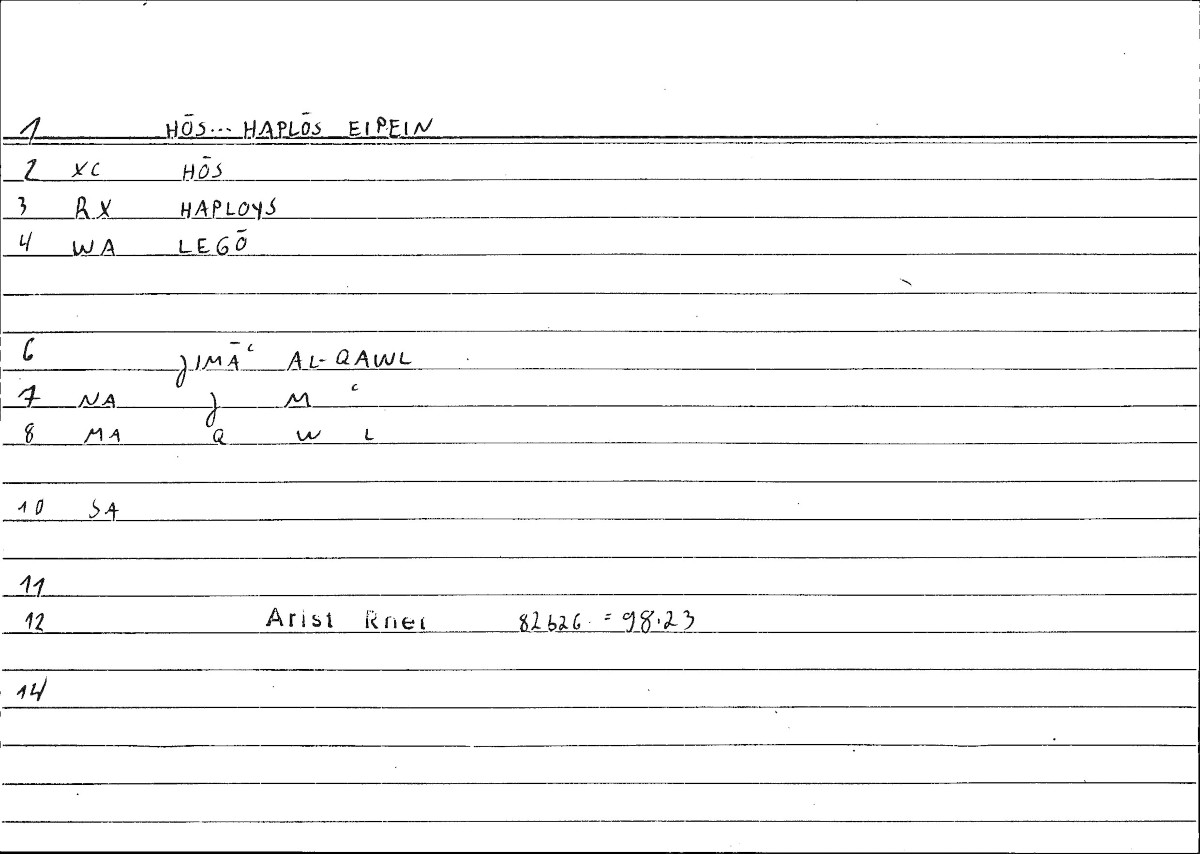 1 HŌS... HAPLŌS EIPEIN
2 XC HŌS
3 RX HAPLOYS
4 WA LEGŌ
6 JIMĀʿ AL-QAWL
7 NA J M ʿ
8 MA Q W L
10 SA
11
12 Arist Rhet 82b26 = 98.23
14